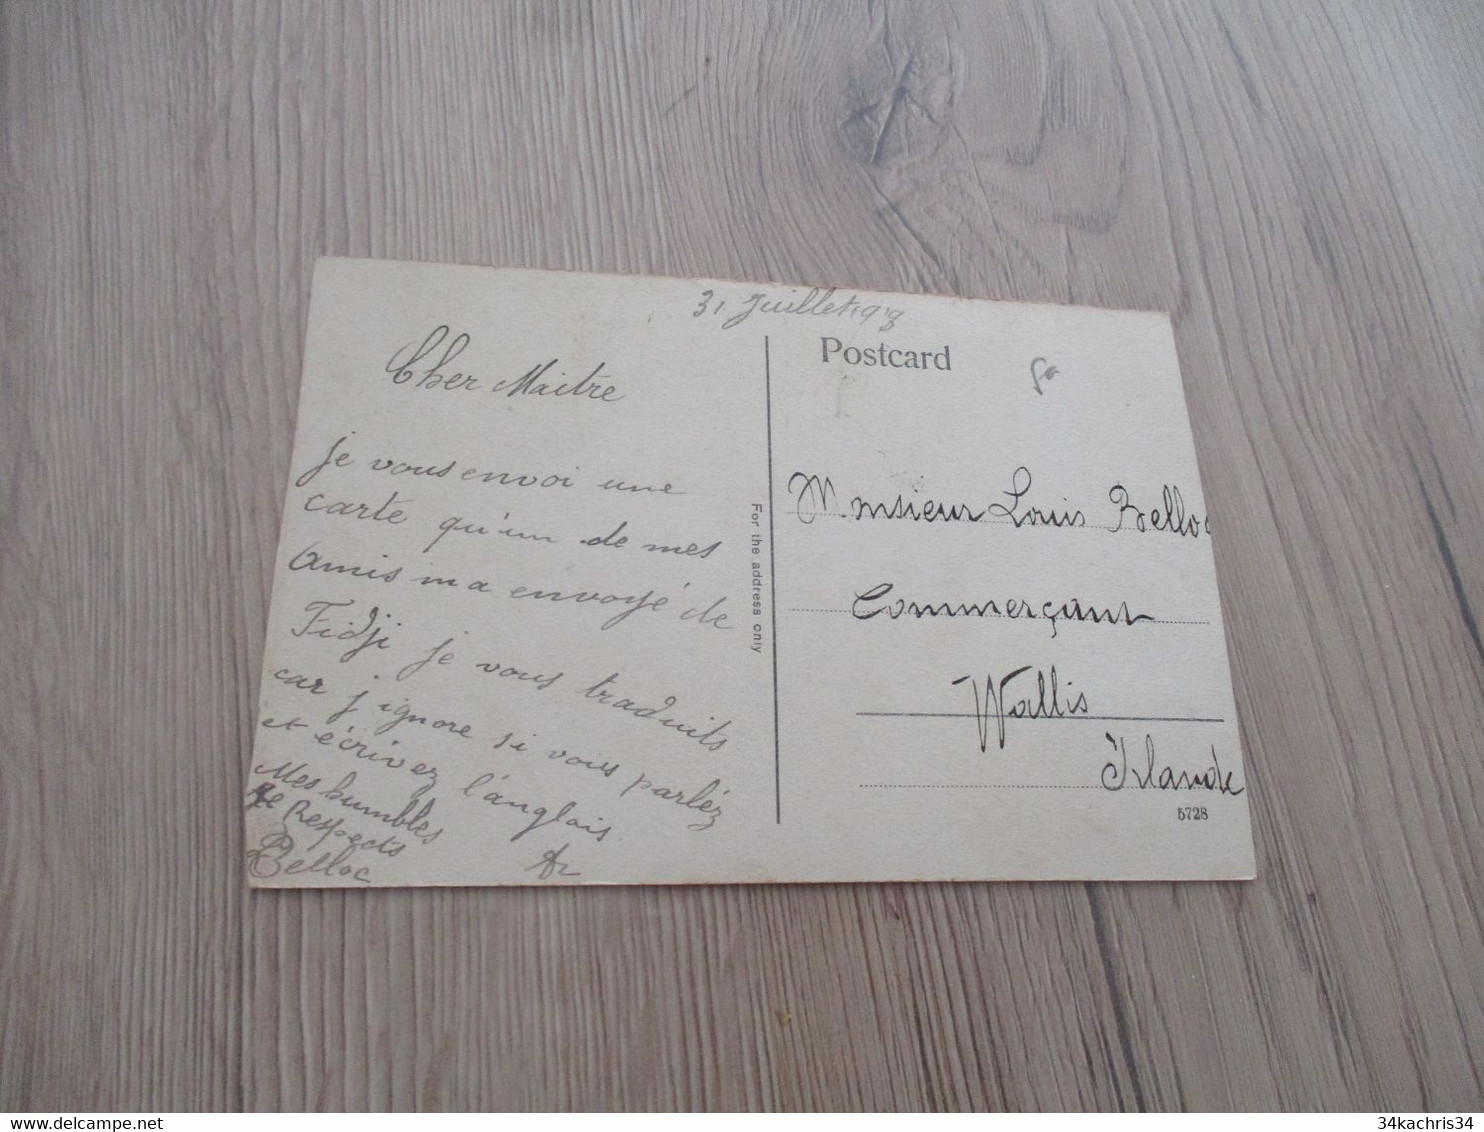 31 Juillet 1918
Cher Maitre
je vous envoi une
carte qu'un de mes
Amis m a envoyé de
Fidji je vous traduits
car j ignore si vous parléz
et écrivez l'anglais.
Mes humbles
Respects
Belloc
Postcard
For the address only
Monsieur Louis Belloc
Commerçant
Wallis
Islande
5728
34kachris34
delcampe.net